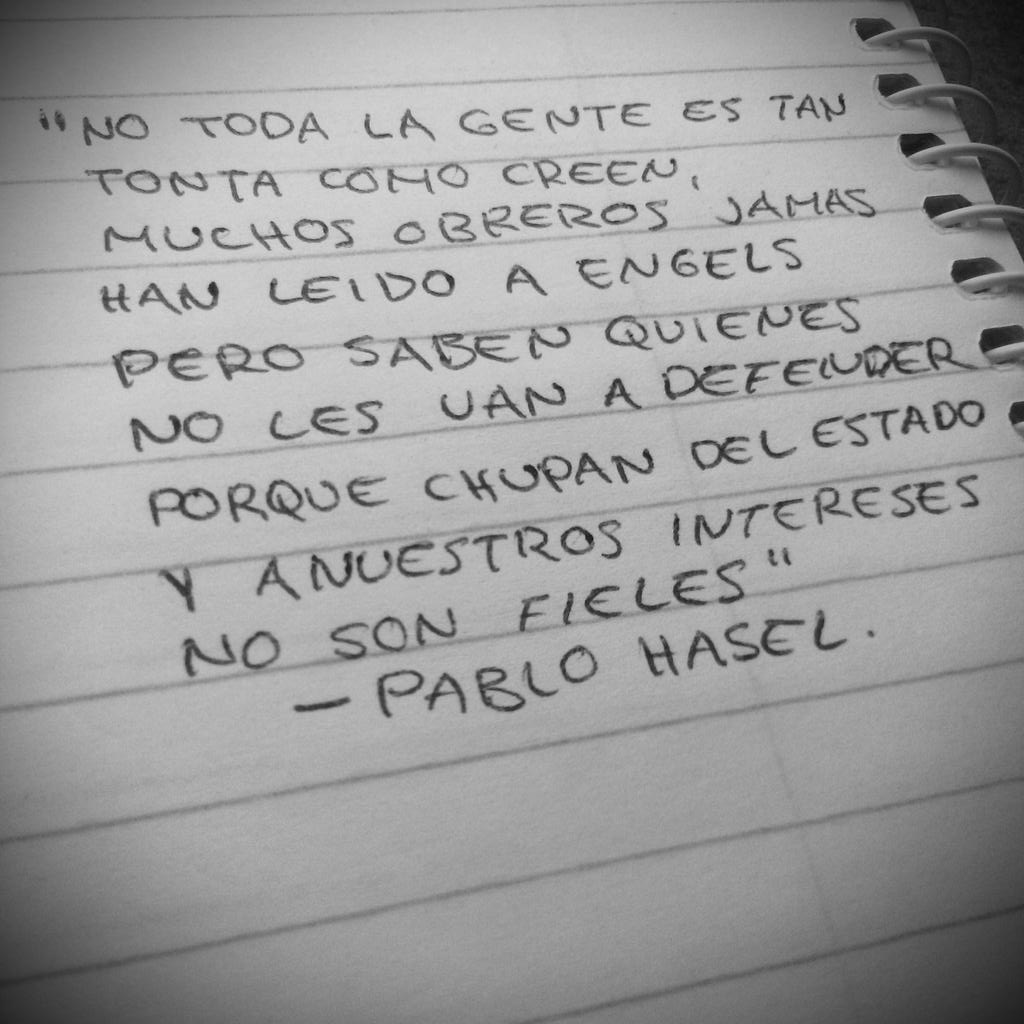 "NO TODA LA GENTE ES TAN
TONTA COMO CREEN,
MUCHOS OBREROS JAMAS
HAN LEIDO A ENGELS
PERO SABEN QUIENES
NO LES VAN A DEFENDER
PORQUE CHUPAN DEL ESTADO
Y A NUESTROS INTERESES
NO SON FIELES"
— PABLO HASEL.